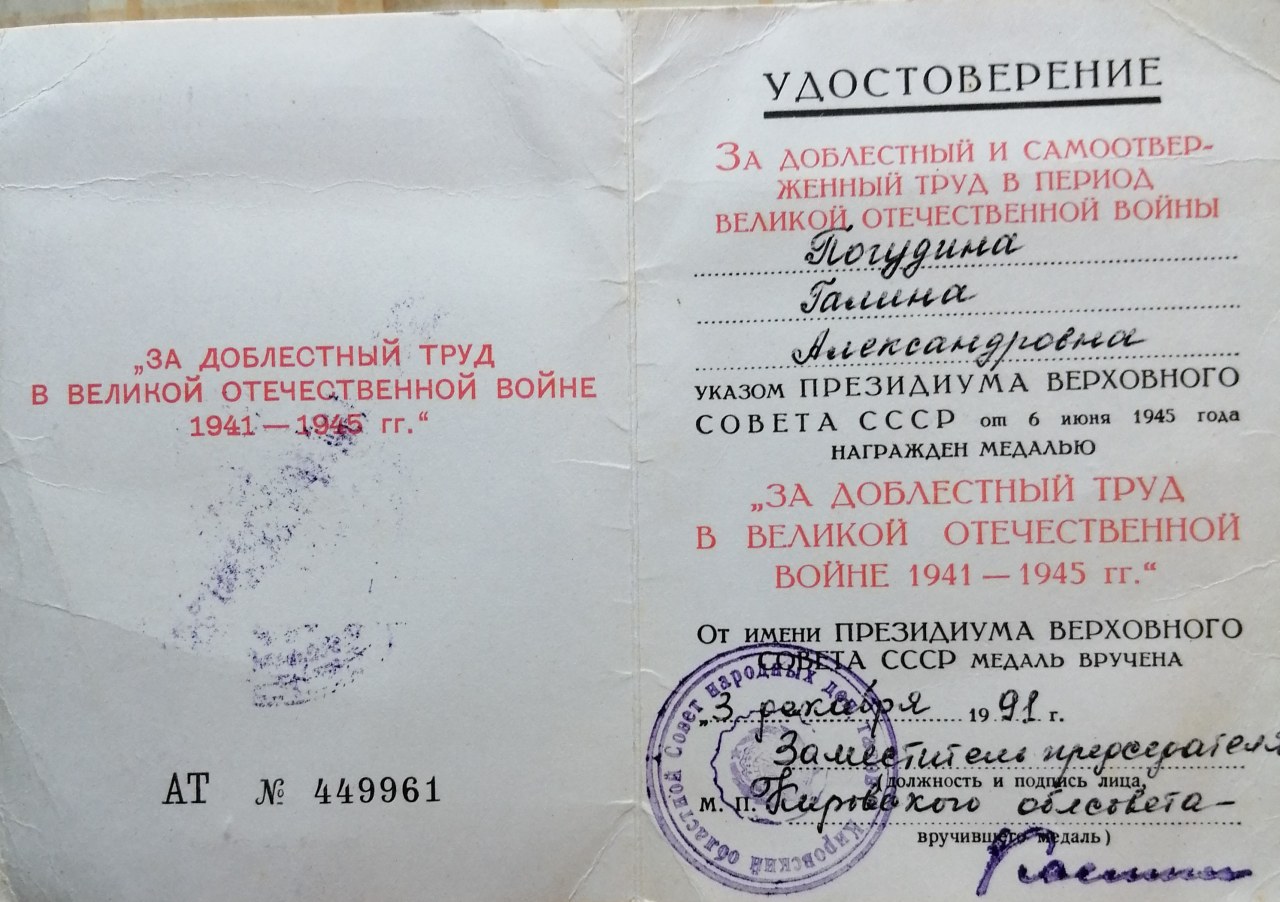 „ЗА ДОБЛЕСТНЫЙ ТРУД
В ВЕЛИКОЙ ОТЕЧЕСТВЕННОЙ ВОЙНЕ
1941 — 1945 гг.“
АТ № 449961
УДОСТОВЕРЕНИЕ
ЗА ДОБЛЕСТНЫЙ И САМООТВЕР-
ЖЕННЫЙ ТРУД В ПЕРИОД
ВЕЛИКОЙ ОТЕЧЕСТВЕННОЙ ВОЙНЫ
Погудина
Галина
Александровна
УКАЗОМ ПРЕЗИДИУМА ВЕРХОВНОГО
СОВЕТА СССР от 6 июня 1945 года
НАГРАЖДЕН МЕДАЛЬЮ
„ЗА ДОБЛЕСТНЫЙ ТРУД
В ВЕЛИКОЙ ОТЕЧЕСТВЕННОЙ
ВОЙНЕ 1941 — 1945 гг.“
ОТ ИМЕНИ ПРЕЗИДИУМА ВЕРХОВНОГО
СОВЕТА СССР МЕДАЛЬ ВРУЧЕНА
„3 декабря 1991 г.
Заместитель председателя
(должность и подпись лица,
М. П. Кировского облсовета –
вручившего медаль)
Кировский областной Совет народных депутатов